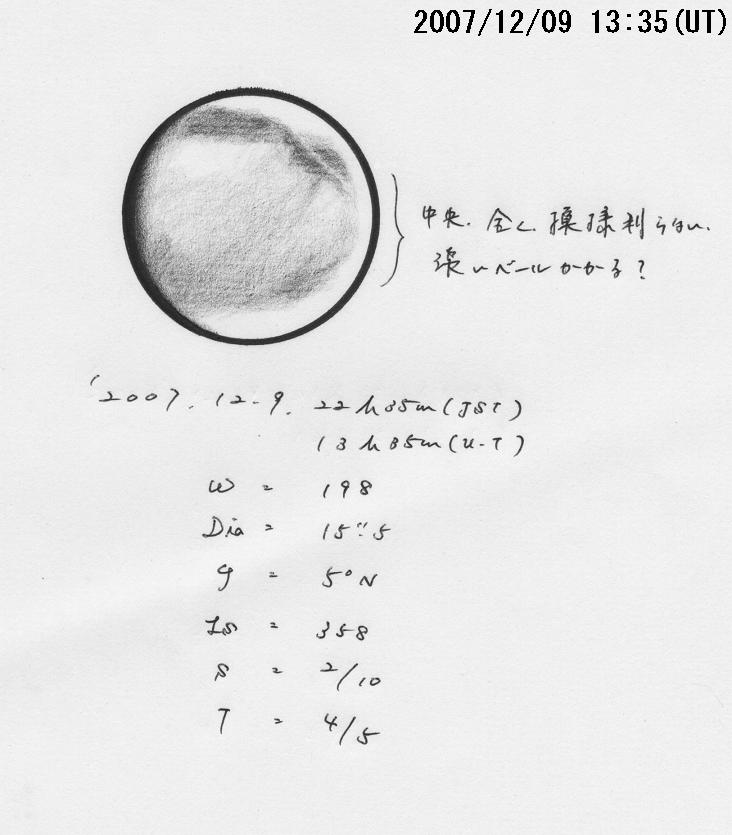 2007/12/09 13:35(UT)
中央、全く模様判らない、
淡いベールかかる?
'2007.12-9. 22h35m(JST)
13h35m(U.T)
ω = 198
Dia = 15".5
φ = 5°N
Ls = 358
S = 2/10
T = 4/5